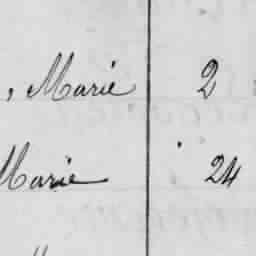 , Marie 2
Marie 24
"